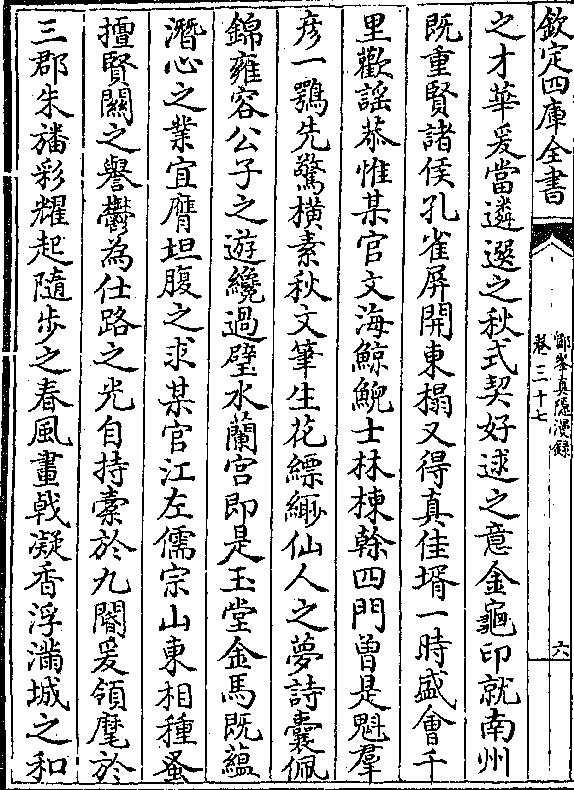 欽定四庫全書
鄮峯真隱漫錄
卷三十七
六
之才華爰當遴選之秋式契好逑之意金龜印就南州
既重賢諸侯孔雀屏開東榻又得真佳壻一時盛會千
里歡謡恭惟某官文海鯨鯢士林棟榦四門曽是魁羣
彦一鶚先驚横素秋文筆生花縹緲仙人之夢詩囊佩
錦雍容公子之遊纔過璧水蘭宫即是玉堂金馬既藴
潛心之業宜膺坦腹之求某官江左儒宗山東相種蚤
擅賢關之譽鬱為仕路之光自持橐於九閽爰領麾於
三郡朱旛彩耀起隨步之春風畫㦸凝香浮滿城之和